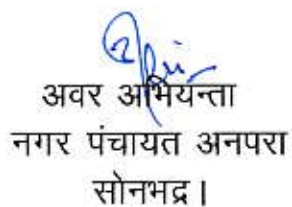 अवर अभियन्ता
नगर पंचायत अनपरा
सोनभद्र।